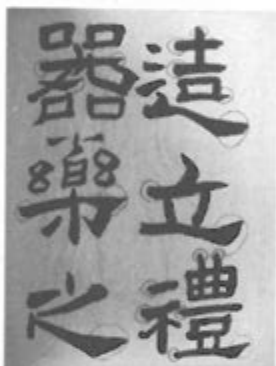 造立禮
器樂之